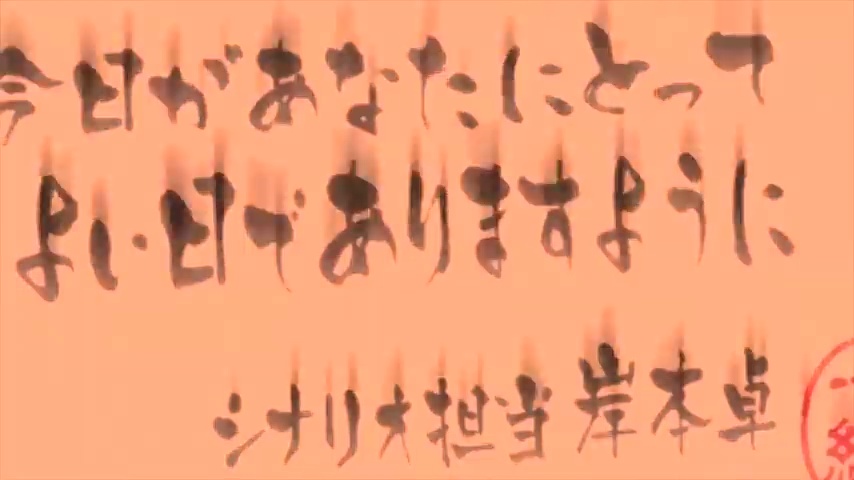 今日があなたにとって
よい日でありますように
シナリオ担当 岸本卓